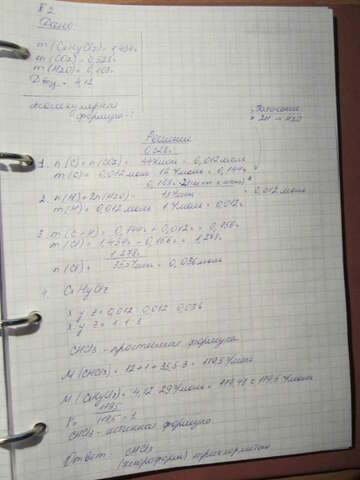 №2
Дано
m(CxHyClz) = 1,434г
m(CO2) = 0,528г
m(H2O) = 0,108г
Dвозд. = 4,12
молекулярная
формула - ?
Пояснение
* 2H → H2O
Решение
0,528г
1. n(C) = n(CO2) = 44г/моль = 0,012 моль
m(C) = 0,012 моль · 12 г/моль = 0,144г
0,108г
2. n(H) = 2n(H2O) = 18г/моль = 0,012 моль
m(H) = 0,012 моль · 1 г/моль = 0,012г
3. m(C+H) = 0,144г + 0,012г = 0,156г
m(Cl) = 1,434г - 0,156г = 1,278г
1,278г
n(Cl) = 35,5г/моль = 0,036моль
4. CxHyClz
x:y:z = 0,012:0,012:0,036
x:y:z = 1:1:3
CHCl3 - простейшая формула
M(CHCl3) = 12+1+35,5·3 = 119,5г/моль
M(CxHyClz) = 4,12·29г/моль = 119,48 ≈ 119,5 г/моль
119,5
119,5 = 1
CHCl3 - истинная формула
Ответ: CHCl3
(хлороформ) трихлорметан